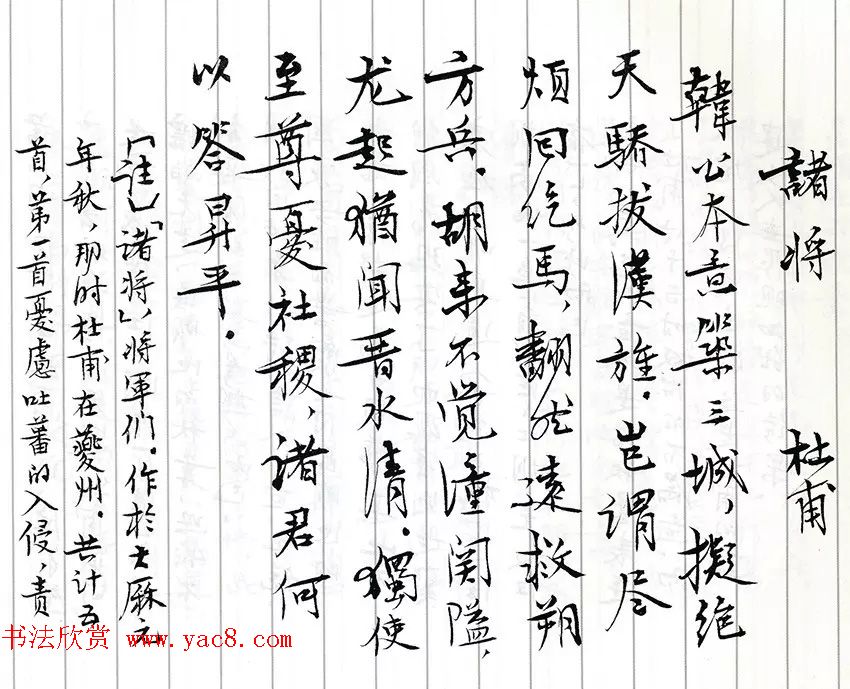 諸将 杜甫
韓公本意築三城，擬絶
天驕拔漢旌。岂谓尽
烦回纥馬，翻然遠救朔
方兵。胡来不覺潼関隘，
龙起猶闻晋水清。獨使
至尊憂社稷，诸君何
以答昇平。
［註］「诸将」，将軍们。作於大厤元
年秋，那时杜甫在夔州。共计五
首，第一首憂慮吐蕃的入侵，责
书法欣赏 www.yac8.com